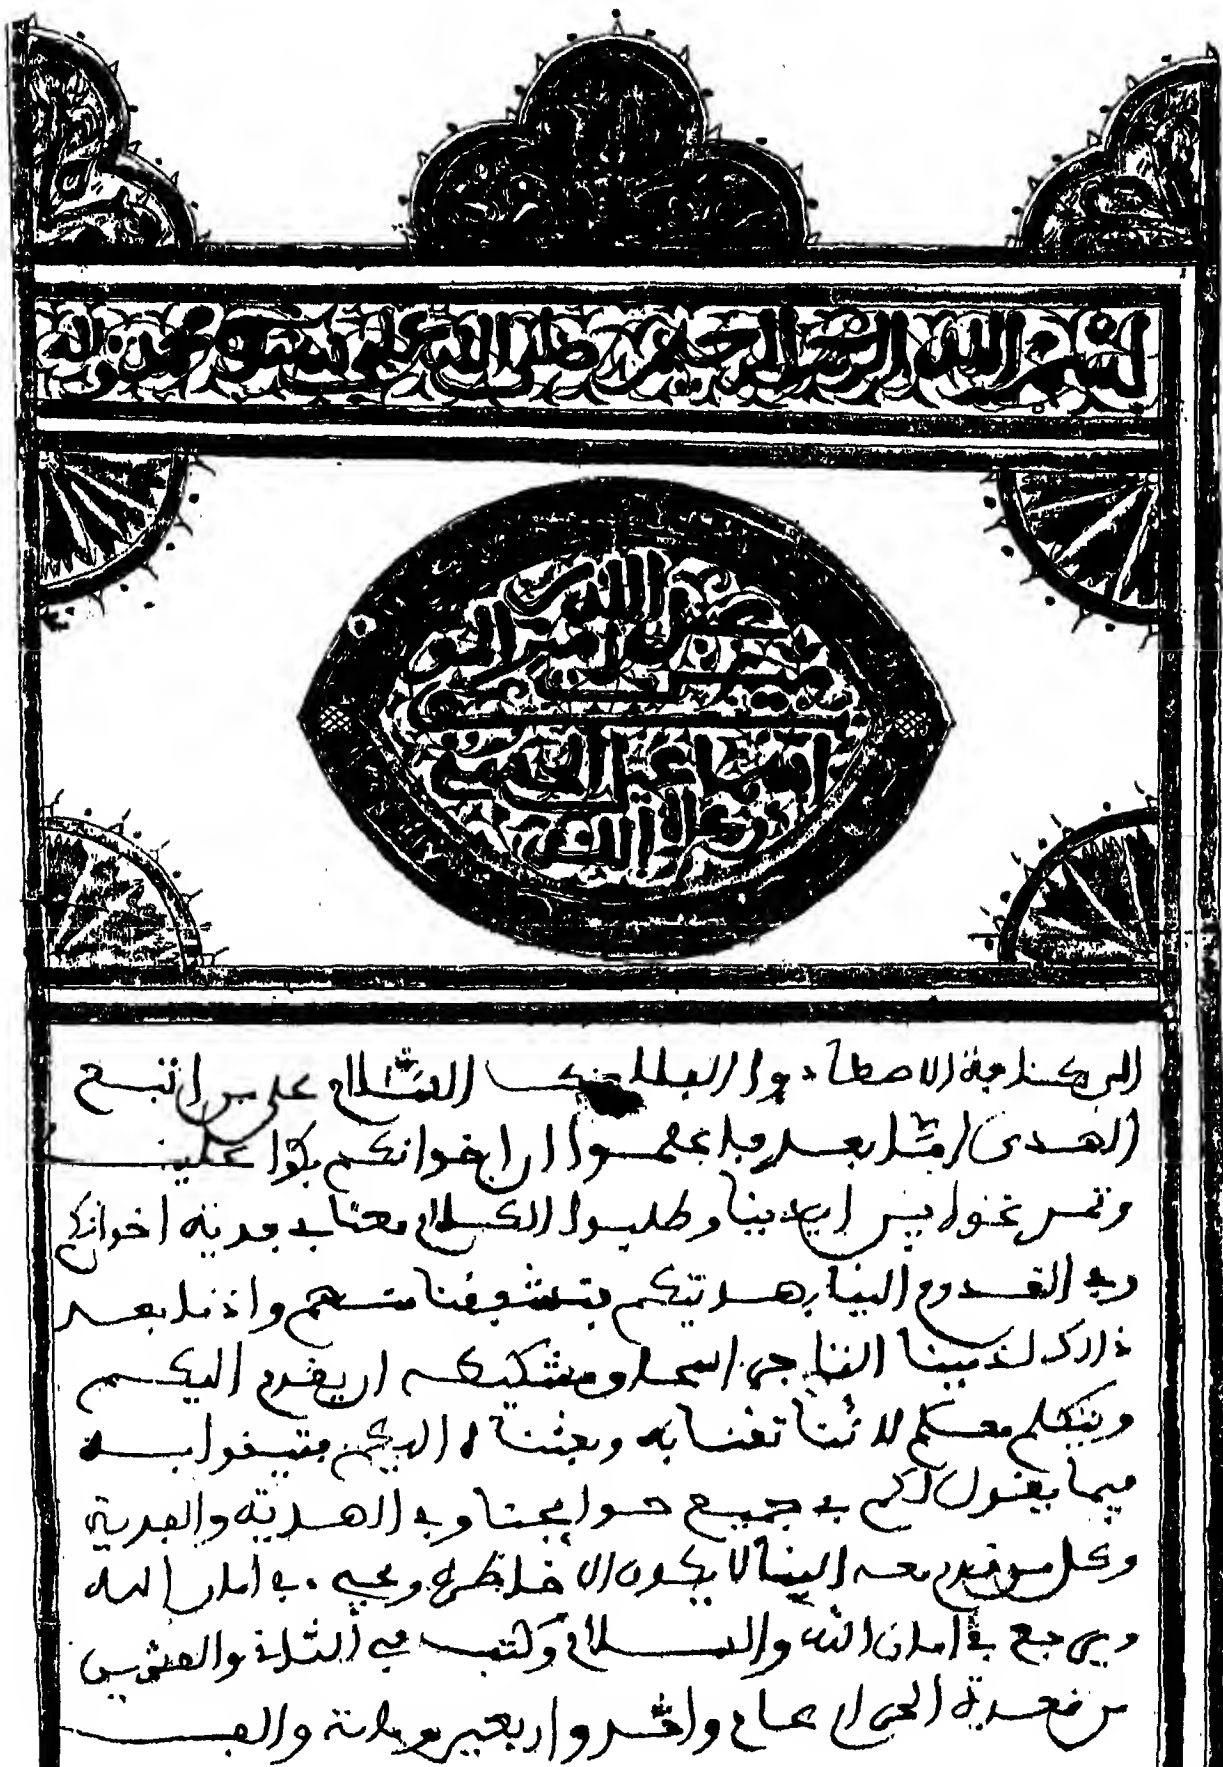 بسم الله الرحمن الرحيم صلى الله على سيدنا محمد وءاله
عن أمر عبد الله
أمير المومنين
اسماعيل الحسني
أيده الله
السلام على من اتبع
الهدى أما بعد فاعلموا ان اخوانكم علينا
وتمرغوا بين ايدينا وطلبوا الكلام معنا في فدية اخوانكم
وفي القدوم الينا بهديتكم واذنا بعد
ذالك لذمينا التاجر اسحاق ان يقدم اليكم
ويتكلم معكم لاننا تفنا به وبعثناه اليكم فتيقوا به
فيما يقول لكم في جميع حوايجنا وفي الهدية والفدية
وكل من قدم معه الينا لا يكون الا خاطره ويجيء في امان الله
ويرجع في امان الله والسلام وكتب في الثلاثة والعشرين
من قعدة الحرام عام واحد واربعين وماية والف